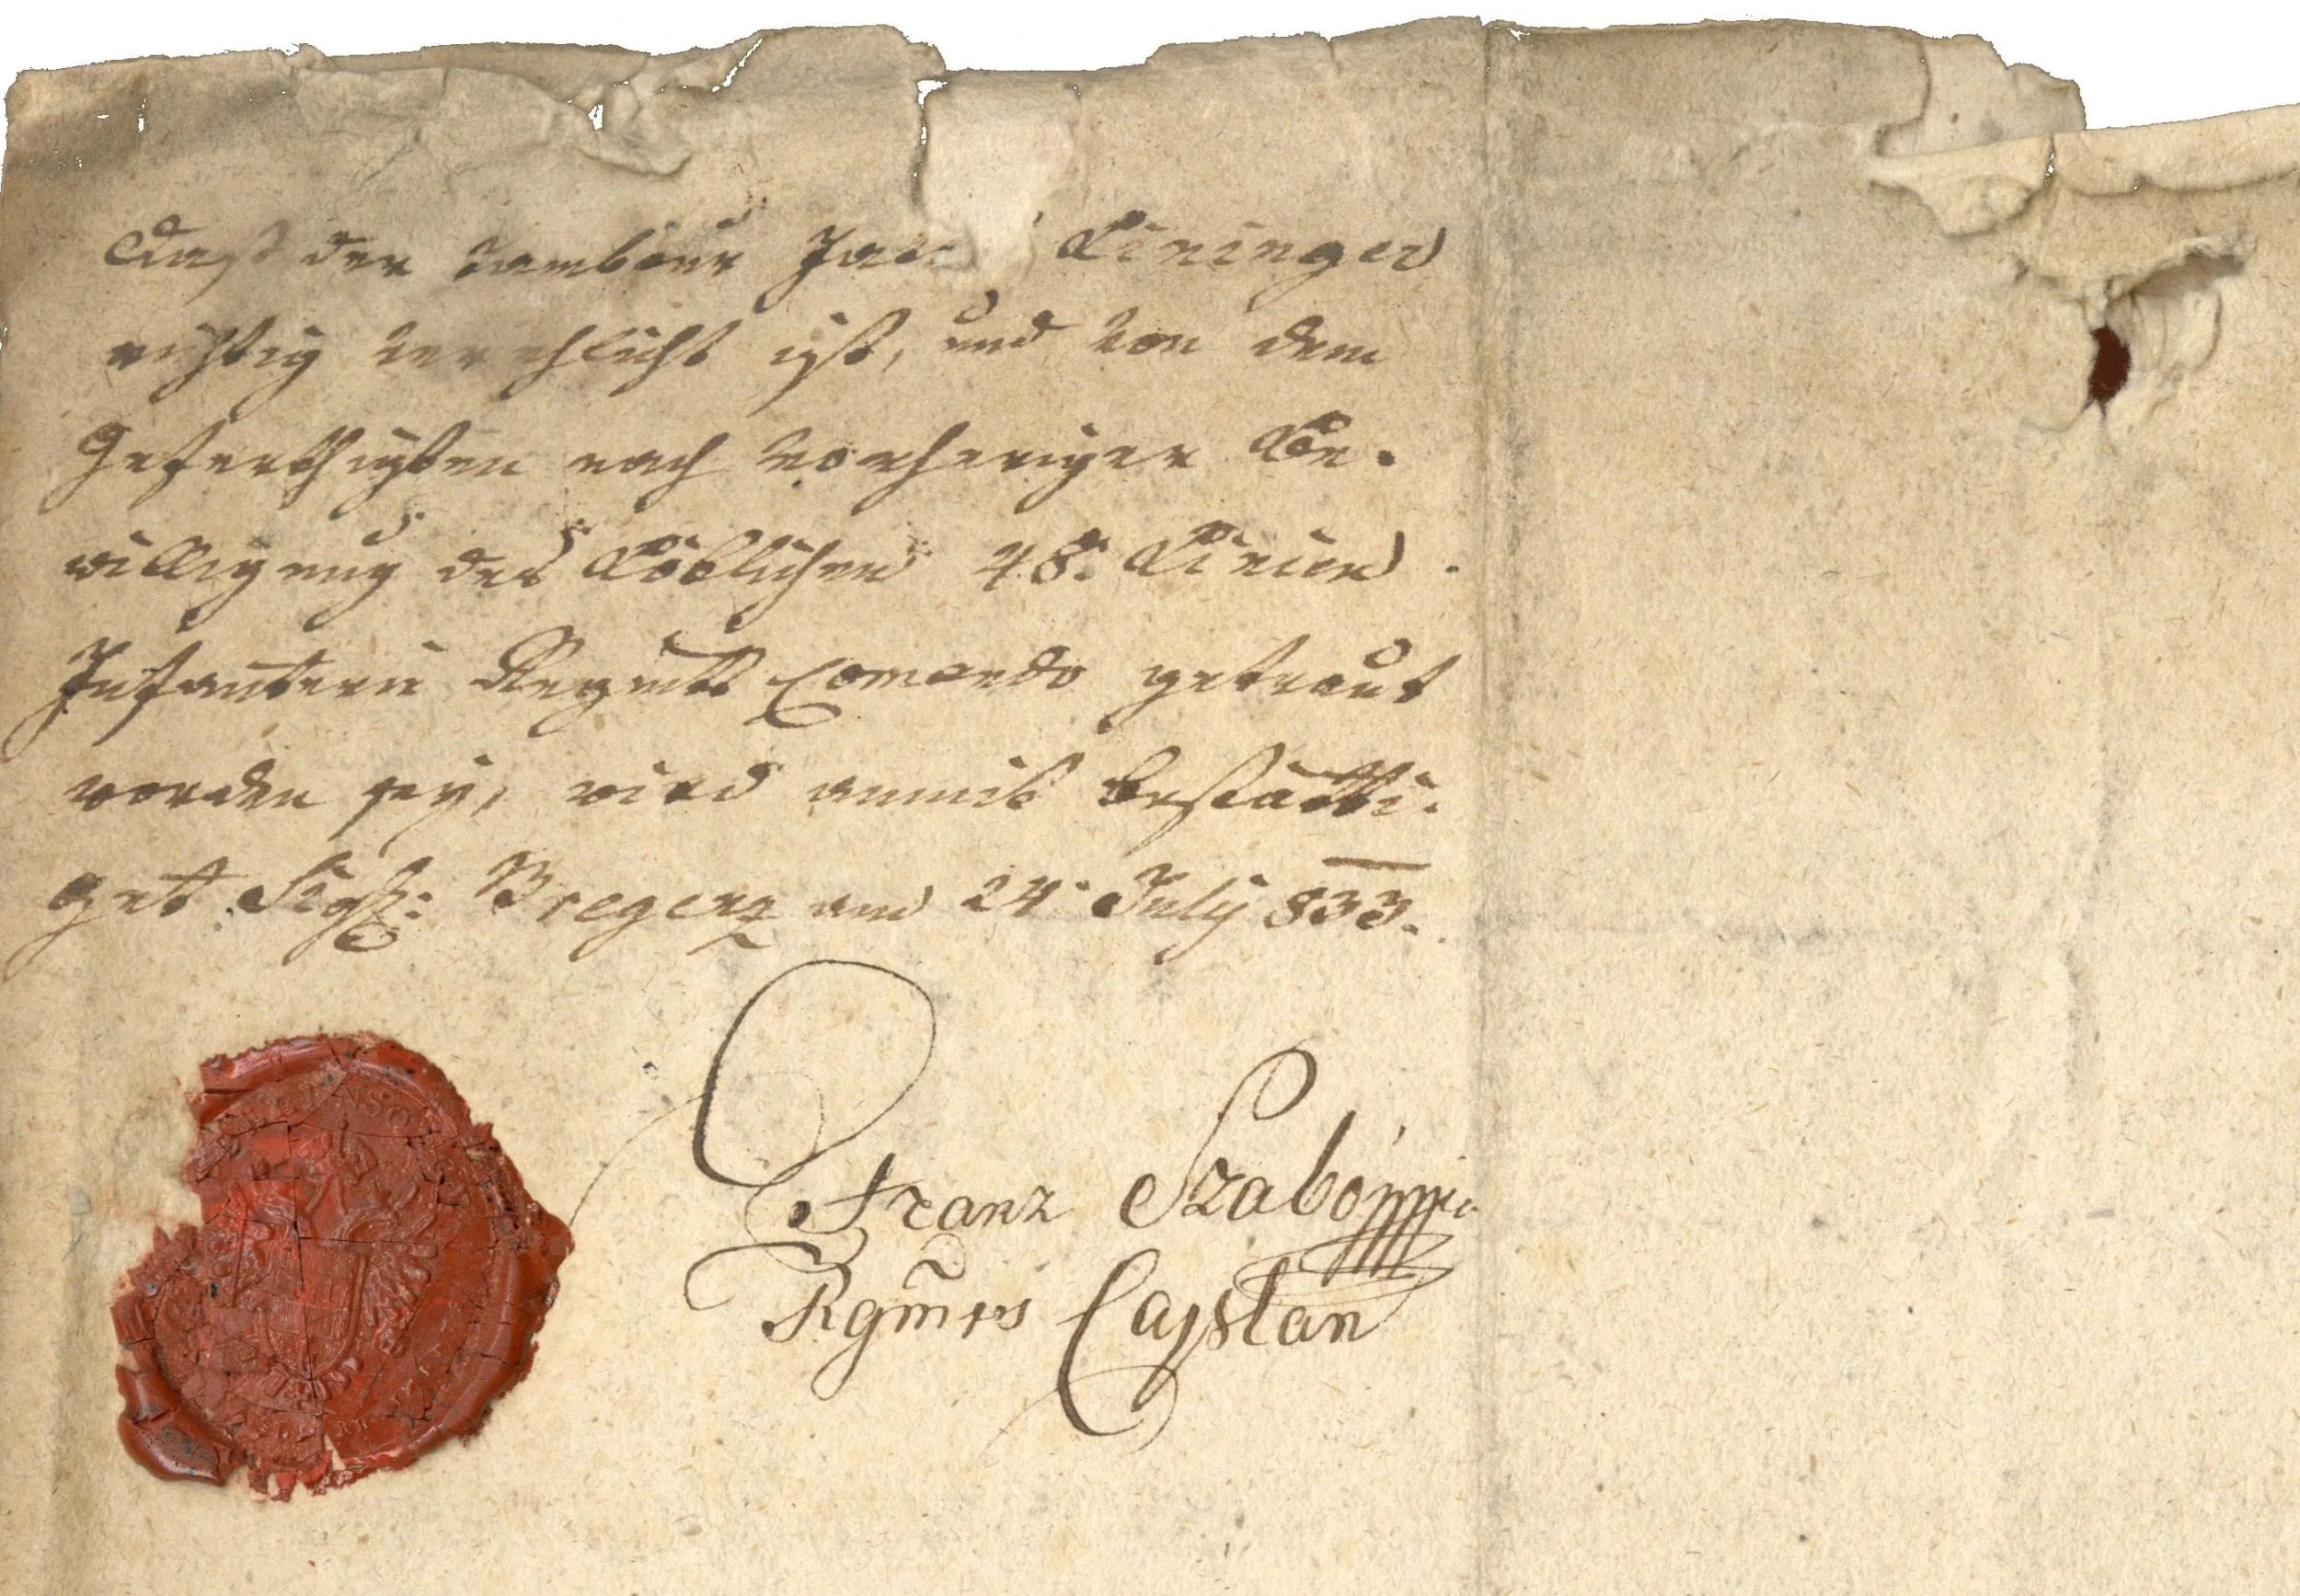 Daß der Tambour Jac Lininger
richtig verehlicht ist, und von dem
Geferthigten nach vorheriger Be-
willigung des Löblichen 48. Linien
Infanterie Regmts Comando getraut
worden sey, wird anmit bestätti-
get. Sigl: Bregenz am 24. July 833.
Franz Szabó mpia
Rgmts Caplan